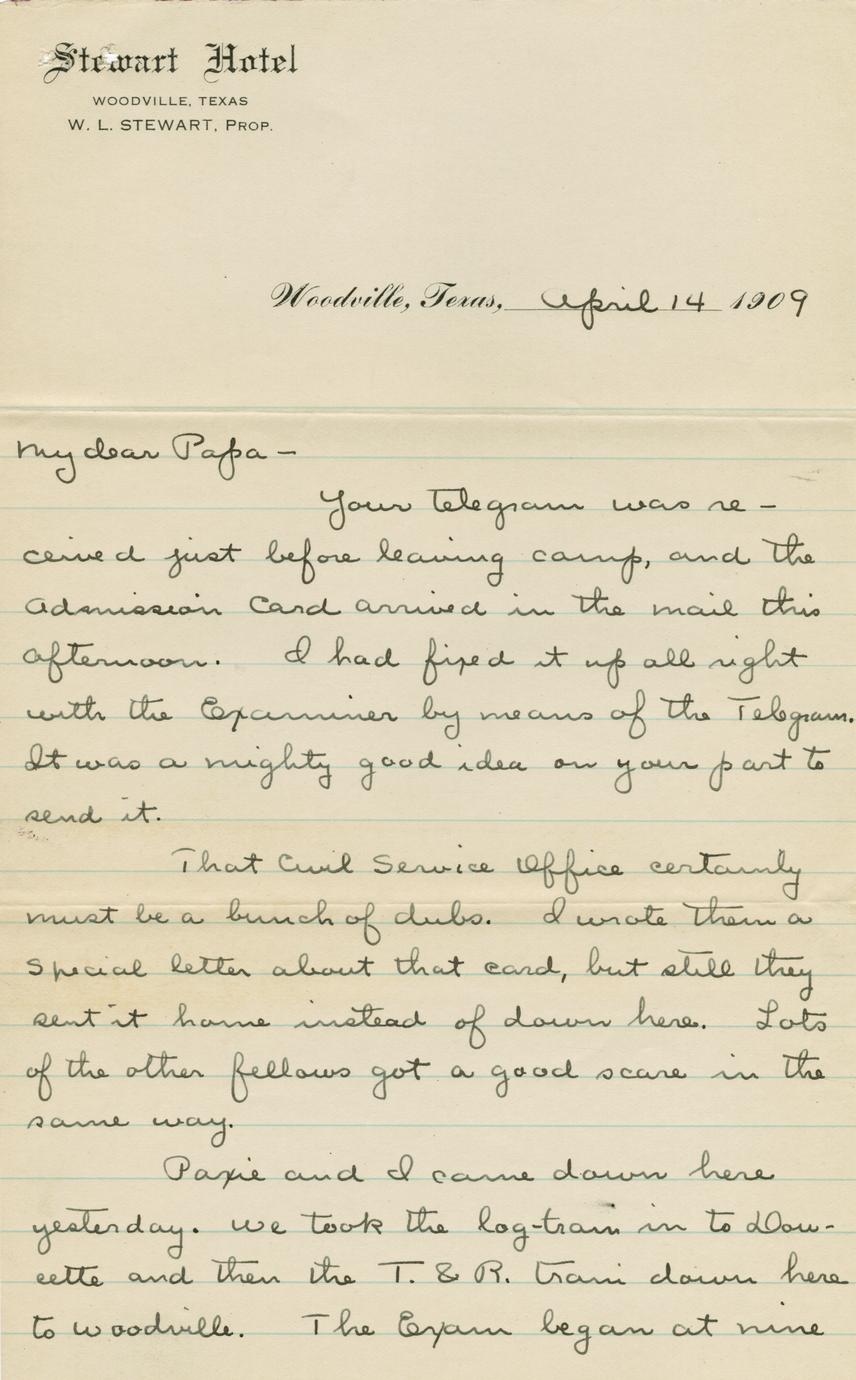 Stewart Hotel
WOODVILLE, TEXAS
W. L. STEWART, PROP.
Woodville, Texas, April 14 1909
My dear Papa -
Your telegram was re-
ceived just before leaving camp, and the
Admission Card arrived in the mail this
afternoon. I had fixed it up all right
with the Examiner by means of the Telegram.
It was a mighty good idea on your part to
send it.
That Civil Service Office certainly
must be a bunch of dubs. I wrote them a
special letter about that card, but still they
sent it home instead of down here. Lots
of the other fellows got a good scare in the
same way.
Paxie and I came down here
yesterday. We took the log-train in to Dou-
cette and then the T. & R. train down here
to Woodville. The Exam began at nine